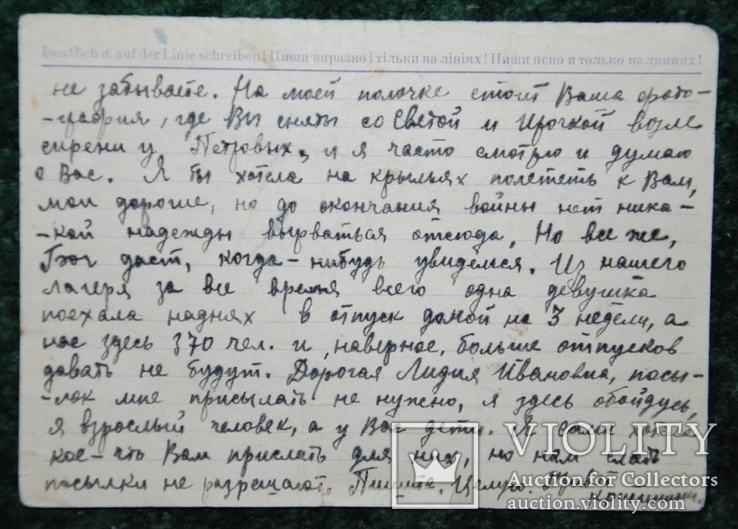 Deutlich u. auf der Linie schreiben! Пиши виразно і тільки на лініях! Пиши ясно и только на линиях!
не забываете. На моей полочке стоит Ваша фото-
-графия, где Вы сняты со Светой и Ирочкой возле
сирени у Петровых, и я часто смотрю и думаю
о Вас. Я бы хотела на крыльях полететь к Вам,
мои дорогие, но до окончания войны нет ника-
-кой надежды вырваться отсюда. Но все же,
Бог даст, когда-нибудь увидемся. Из нашего
лагеря за все время всего одна девушка
поехала наднях в отпуск домой на 3 недели, а
нас здесь 370 чел. и, наверное, больше отпусков
давать не будут. Дорогая Лидия Ивановна, посы-
-лок мне присылать не нужно, я здесь обойдусь,
я взрослый человек, а у Вас дети. Я сама
кое-что Вам прислать для них, но нам слать
посылки не разрешают. Пишите. Целую.
VIOLITY
Auction for Collectors
auction.violity.com